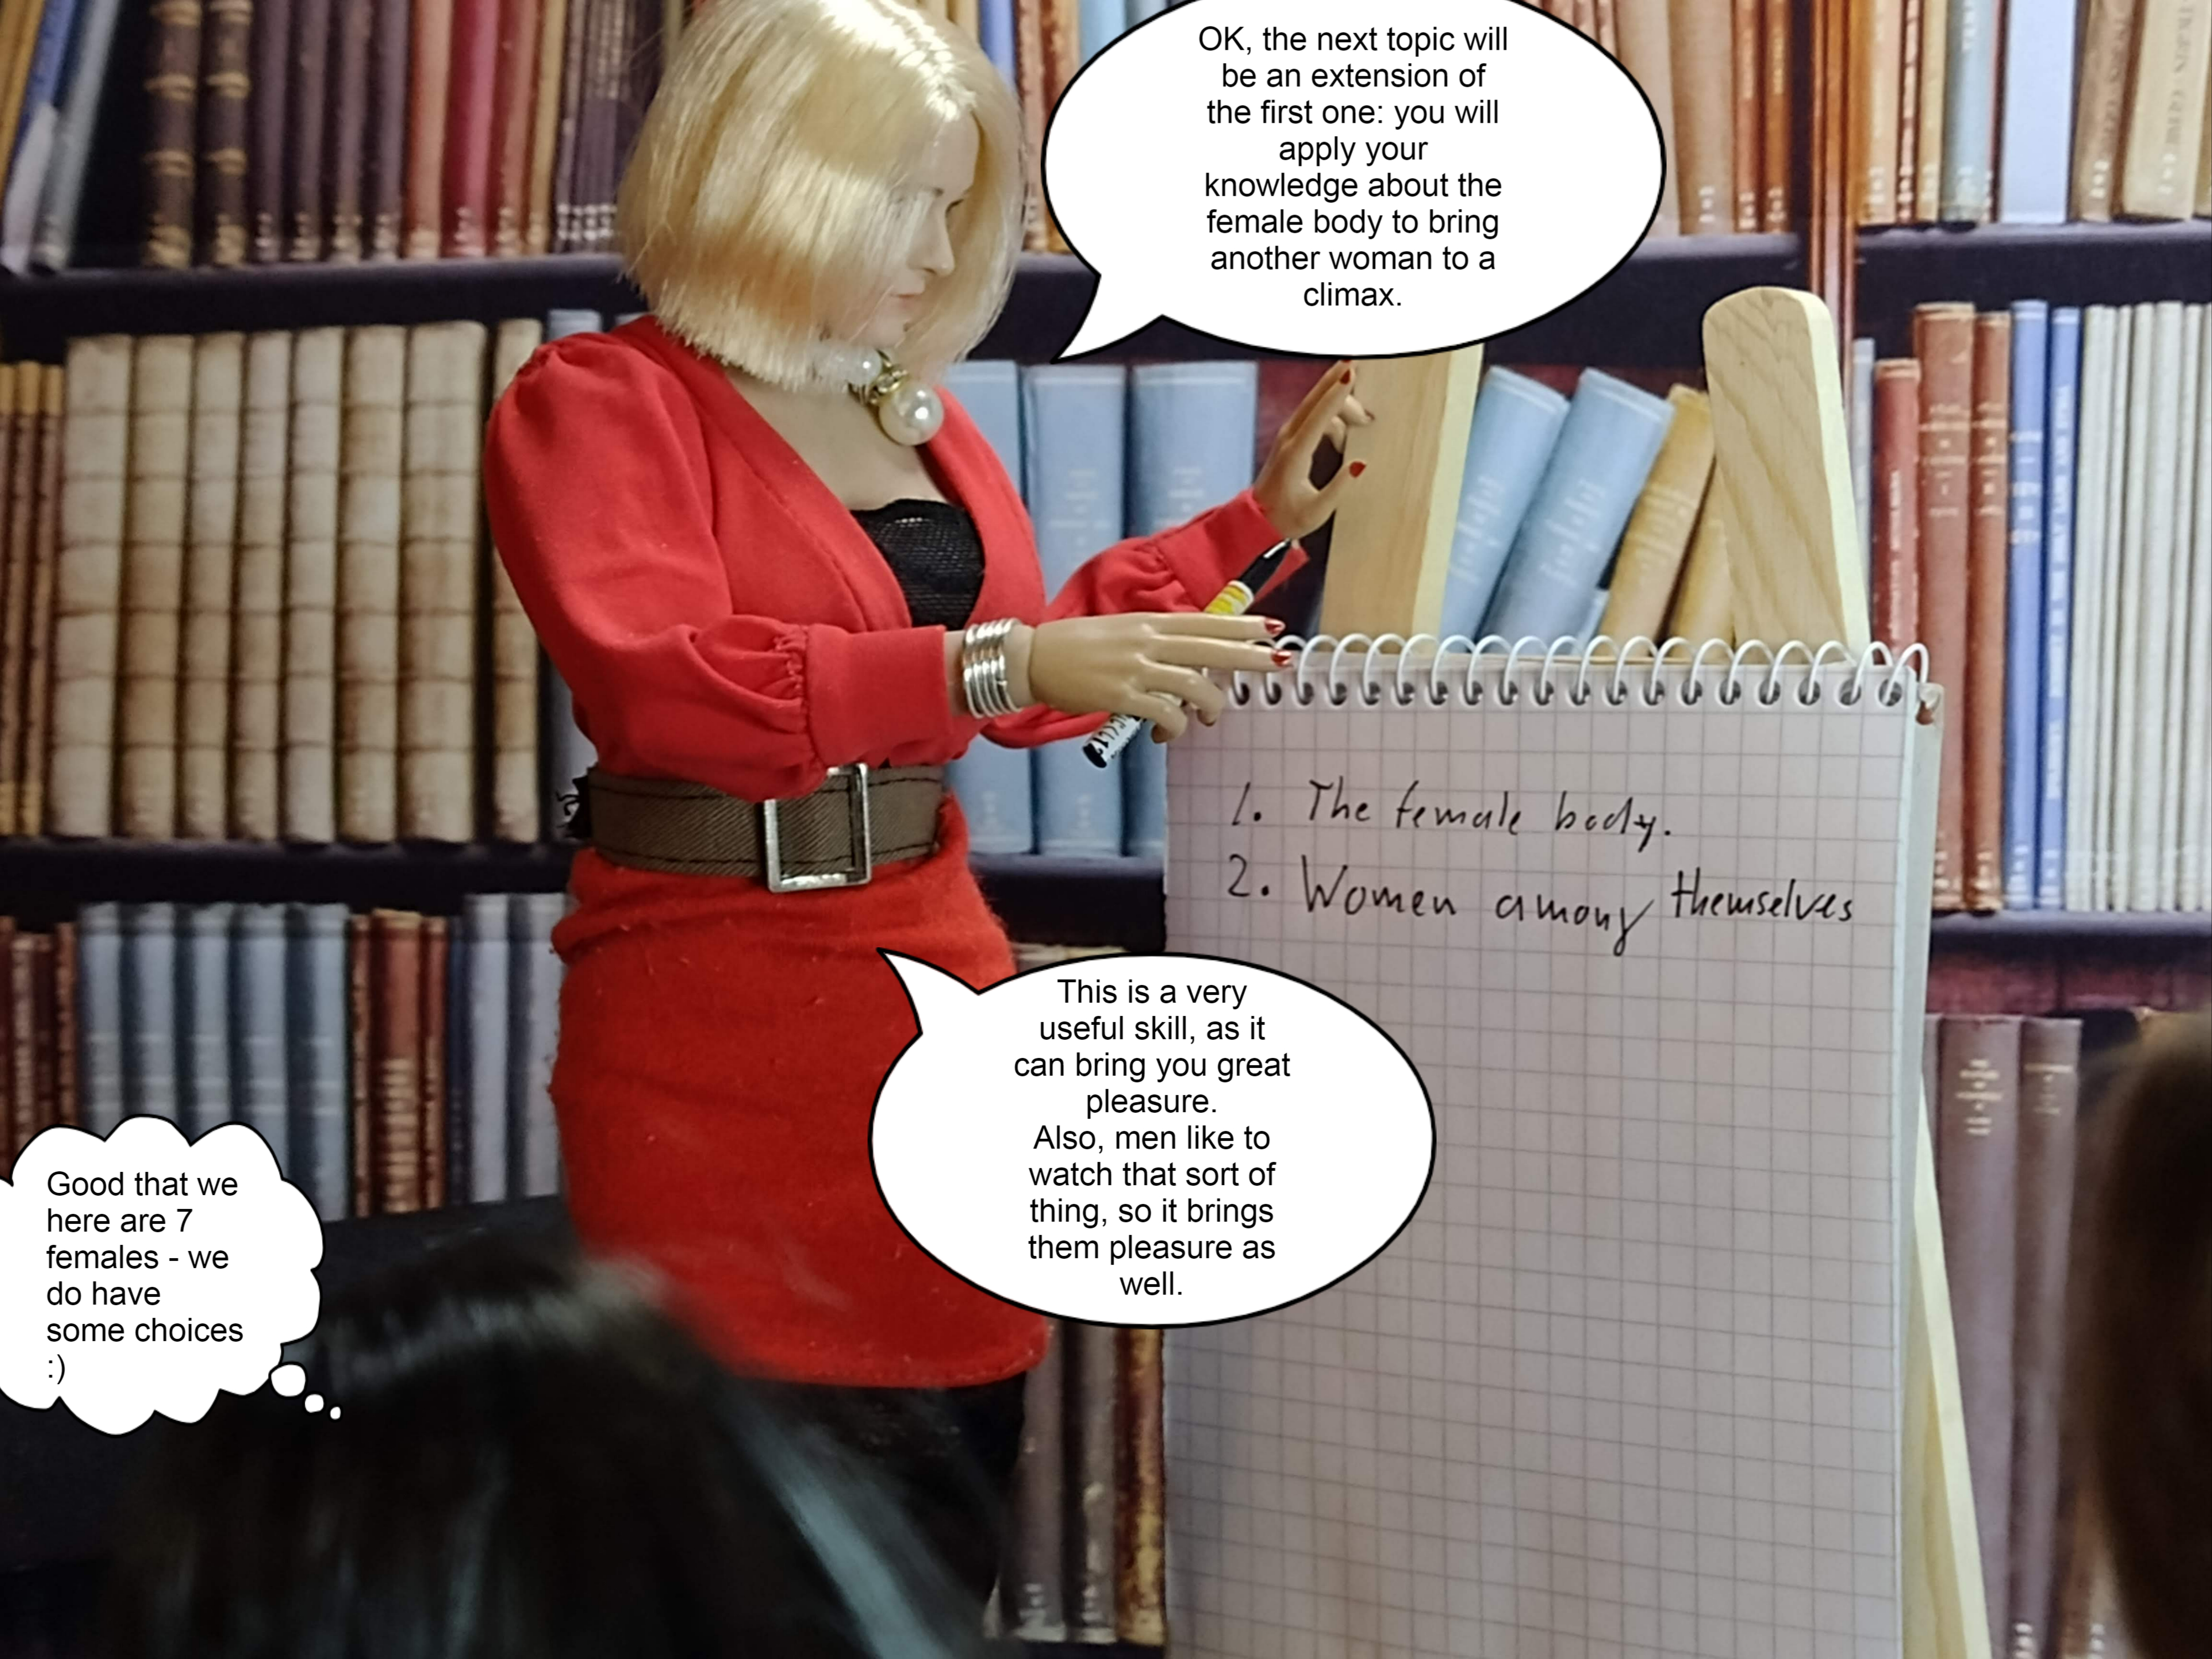 OK, the next topic will
be an extension of
the first one: you will
apply your
knowledge about the
female body to bring
another woman to a
climax.
1. The female body.
2. Women among themselves
This is a very
useful skill, as it
can bring you great
pleasure.
Also, men like to
watch that sort of
thing, so it brings
them pleasure as
well.
Good that we
here are 7
females - we
do have
some choices
:)